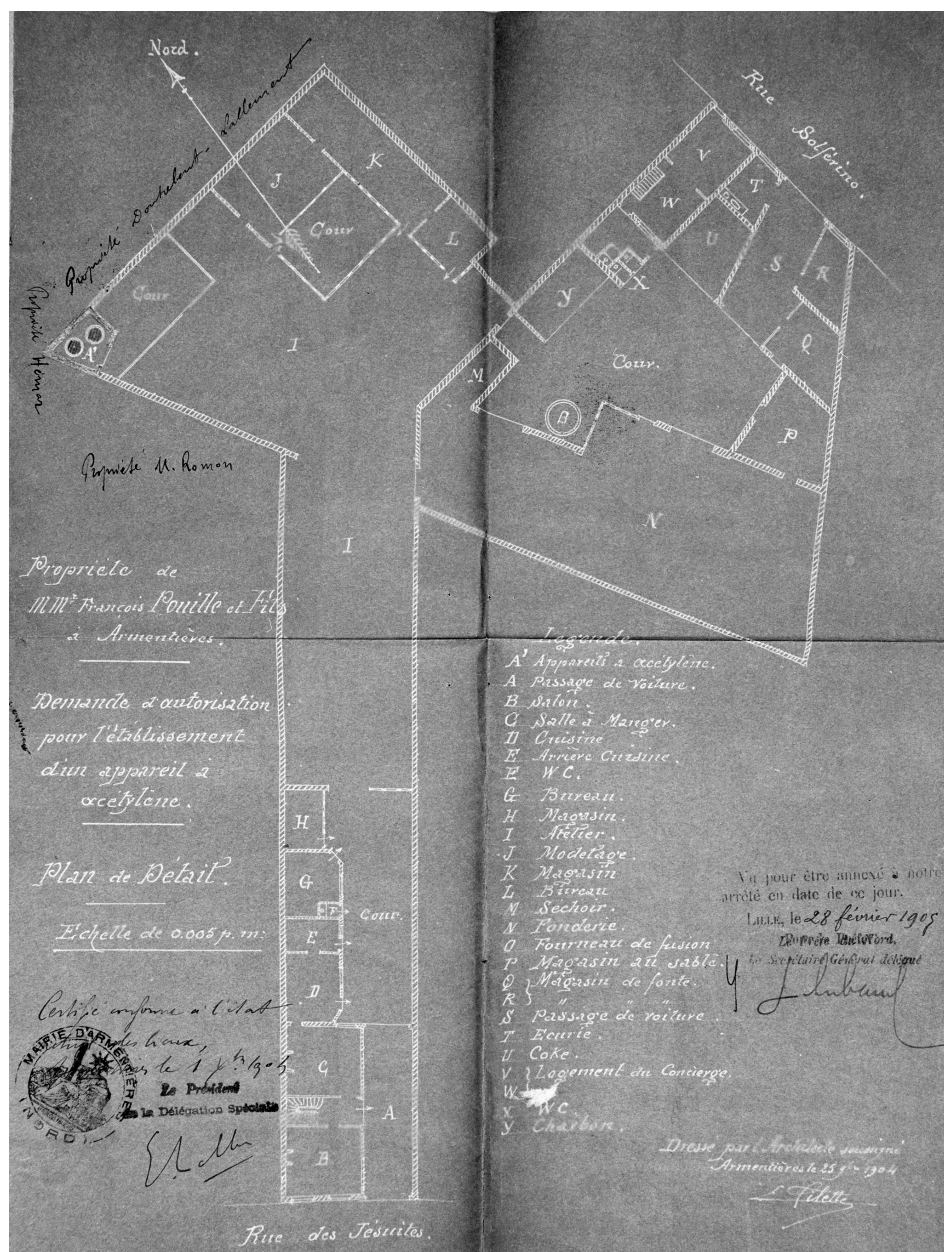 Nord.
Rue
Solférino.
Propriété Lallement
Propriété Hémar
Propriété M. Romon
J
K
Cour
L
Cour
A'
I
V
W
T
U
S
R
X
Y
Q
Cour.
M
P
N
I
Propriété de
MMrs François Pouille et Fils
à Armentières.
Demande d'autorisation
pour l'établissement
d'un appareil à
acétylène.
Plan de Détail.
Echelle de 0.005 p. m:
H
G
F
E
Cour.
D
C
A
B
Rue des Jésuites.
Légende.
A' Appareils à acétylène.
A Passage de voiture.
B Salon.
C Salle à Manger.
D Cuisine
E Arrière Cuisine.
F W.C.
G Bureau.
H Magasin.
I Atelier.
J Modelage.
K Magasin
L Bureau
M Sechoir.
N Fonderie.
O Fourneau de fusion
P Magasin au sable.
Q Magasin de fonte.
R " " "
S Passage de voiture.
T Ecurie.
U Coke.
V Logement du Concierge.
W
X W.C.
Y Charbon.
Vu pour être annexé à notre
arrêté en date de ce jour.
LILLE, le 28 février 1905
Le Secrétaire Général délégué
Certifié conforme à l'état
des lieux,
MAIRIE D'ARMENTIÈRES
(NORD)
Le Président
de la Délégation Spéciale
Dressé par l'Architecte soussigné
Armentières le 25 9bre 1904